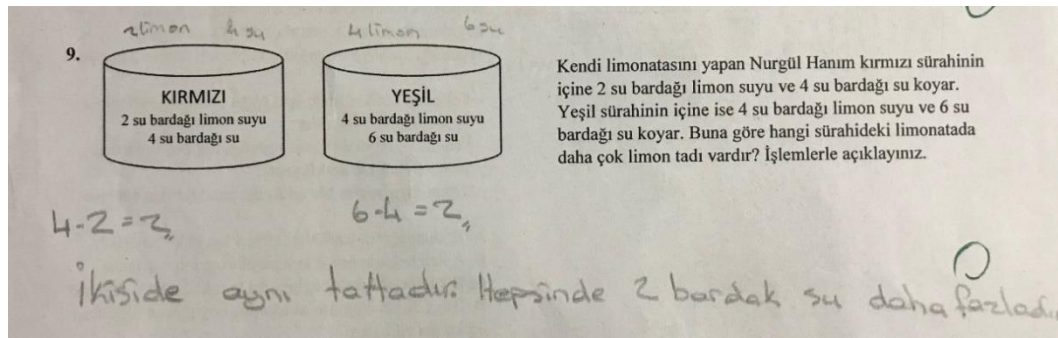 2 limon 4 su 4 limon 6 su
9.
KIRMIZI
2 su bardağı limon suyu
4 su bardağı su
YEŞİL
4 su bardağı limon suyu
6 su bardağı su
Kendi limonatasını yapan Nurgül Hanım kırmızı sürahinin
içine 2 su bardağı limon suyu ve 4 su bardağı su koyar.
Yeşil sürahinin içine ise 4 su bardağı limon suyu ve 6 su
bardağı su koyar. Buna göre hangi sürahideki limonatada
daha çok limon tadı vardır? İşlemlerle açıklayınız.
4-2=2,, 6-4=2,,
0
İkiside aynı tattadır. Hepsinde 2 bardak su daha fazladır